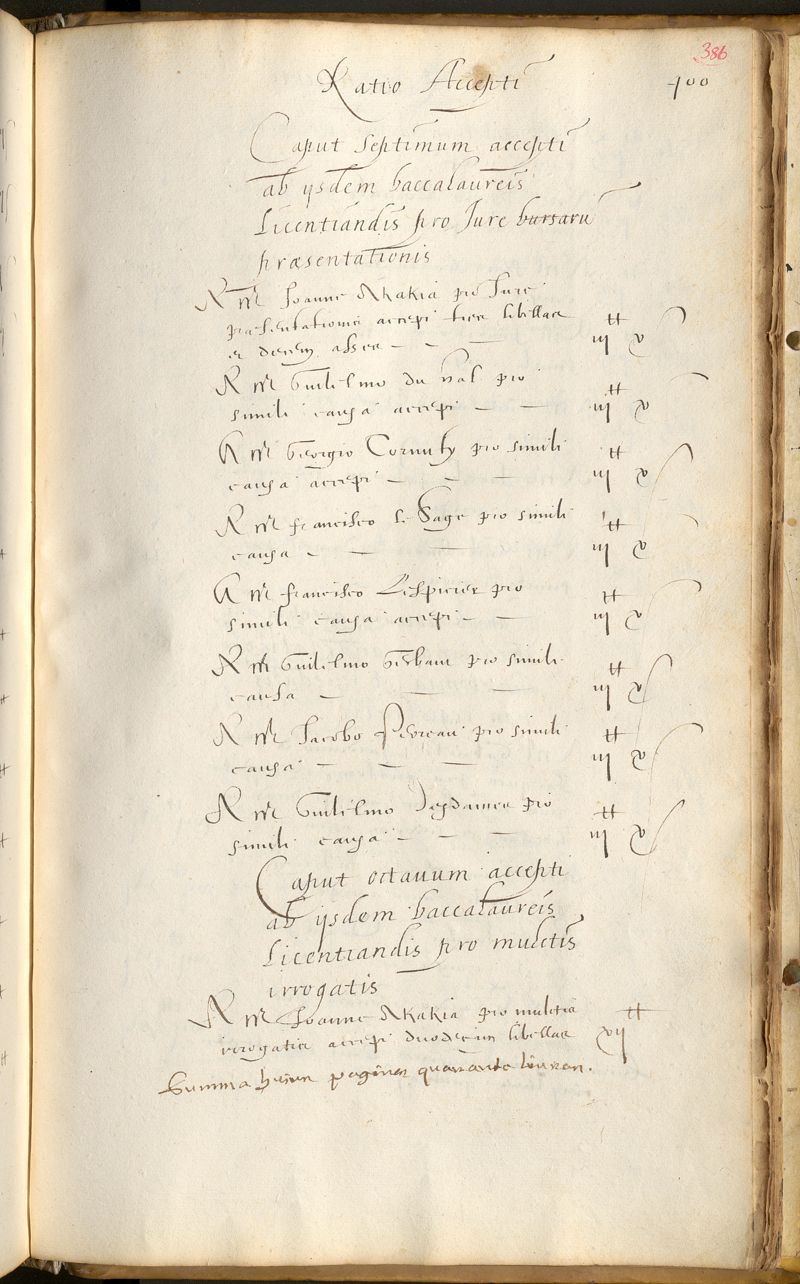 386
Ratio Accepti
400
Caput septimum accepti
ab ijsdem baccalaureis
Licentiandis pro Jure bursaru
præsentationis
A mr Joanne Akakia pro Jure
præsentationis accepi tres libellas
et decem asses — — — iij tt x
A mr Guilelmo du Val pro
simili causa accepi — — iij tt x
A mr Georgio Cornuty pro simili
causa accepi — — — iij tt x
A mr francisco le Sage pro simili
causa — — — iij tt x
A mr francisco Lespicier pro
simili causa accepi — — iij tt x
A mr Guilelmo Gerbaut pro simili
causa — — — iij tt x
A mr Jacobo pro simili
causa — — — iij tt x
A mr Guilelmo pro
simili causa — — — iij tt x
Caput octauum accepti
ab ijsdem baccalaureis
Licentiandis pro mulctis
irrogatis
A mr Joanne Akakia pro mulctis
irrogatis accepi duodecim libellas xij tt
Summa huius paginæ quarante liures.